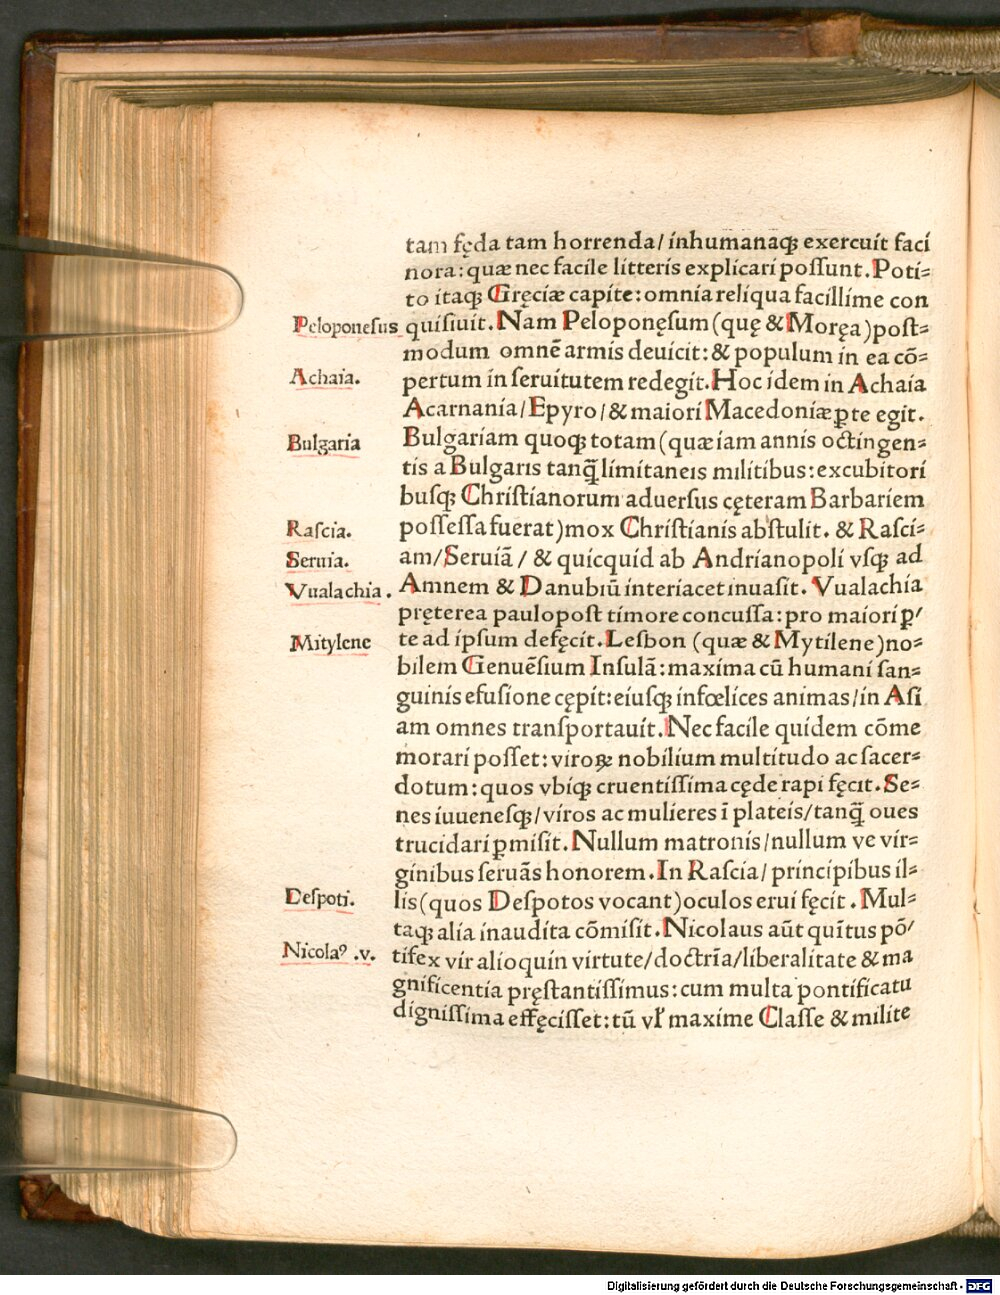 tam fęda tam horrenda/ inhumanaqꝫ exercuit faci
nora: quæ nec facile litteris explicari poſſunt. Poti⸗
to itaqꝫ Gręciæ capite: omnia reliqua facillime con
Peloponesus quiſiuit. Nam Peloponęſum (quę & Moręa) poſt⸗
modum omnē armis deuicit: & populum in ea cō⸗
Achaia. pertum in ſeruitutem redegit. Hoc idem in Achaia
Acarnania/ Epyro/ & maiori Macedoniæ ꝑte egit.
Bulgaria Bulgariam quoqꝫ totam (quæ iam annis octingen⸗
tis a Bulgaris tanq̄ limitaneis militibus: excubitori
buſqꝫ Chriſtianorum aduerſus cęteram Barbariem
Raſcia. poſſeſſa fuerat) mox Chriſtianis abſtulit. & Raſci⸗
Seruia. am/ Seruiā/ & quicquid ab Andrianopoli vſqꝫ ad
Vualachia. Amnem & Danubiū interiacet inuaſit. Vualachia
pręterea paulopoſt timore concuſſa: pro maiori ꝑ⸗
Mitylene te ad ipſum defęcit. Leſbon (quæ & Mytilene) no⸗
bilem Genuēſium Inſulā: maxima cū humani ſan⸗
guinis efuſione cępit: eiuſqꝫ infœlices animas/ in Aſi
am omnes tranſportauit. Nec facile quidem cōme
morari poſſet: viroꝝ nobilium multitudo ac ſacer⸗
dotum: quos vbiqꝫ cruentiſſima cęde rapi fęcit. Se⸗
nes iuueneſqꝫ/ viros ac mulieres ī plateis/ tanq̄ oues
trucidari ꝑmiſit. Nullum matronis/ nullum ve vir⸗
ginibus ſeruās honorem. In Raſcia/ principibus il⸗
Deſpoti. lis (quos Deſpotos vocant) oculos erui fęcit. Mul⸗
taqꝫ alia inaudita cōmiſit. Nicolaus aūt quītus pō⸗
Nicolaꝰ .v. tifex vir alioquin virtute/ doctrīa/ liberalitate & ma
gnificentia pręſtantiſſimus: cum multa pontificatu
digniſſima effęciſſet: tū vľ maxime Claſſe & milite
Digitalisierung gefördert durch die Deutsche Forschungsgemeinschaft - DFG